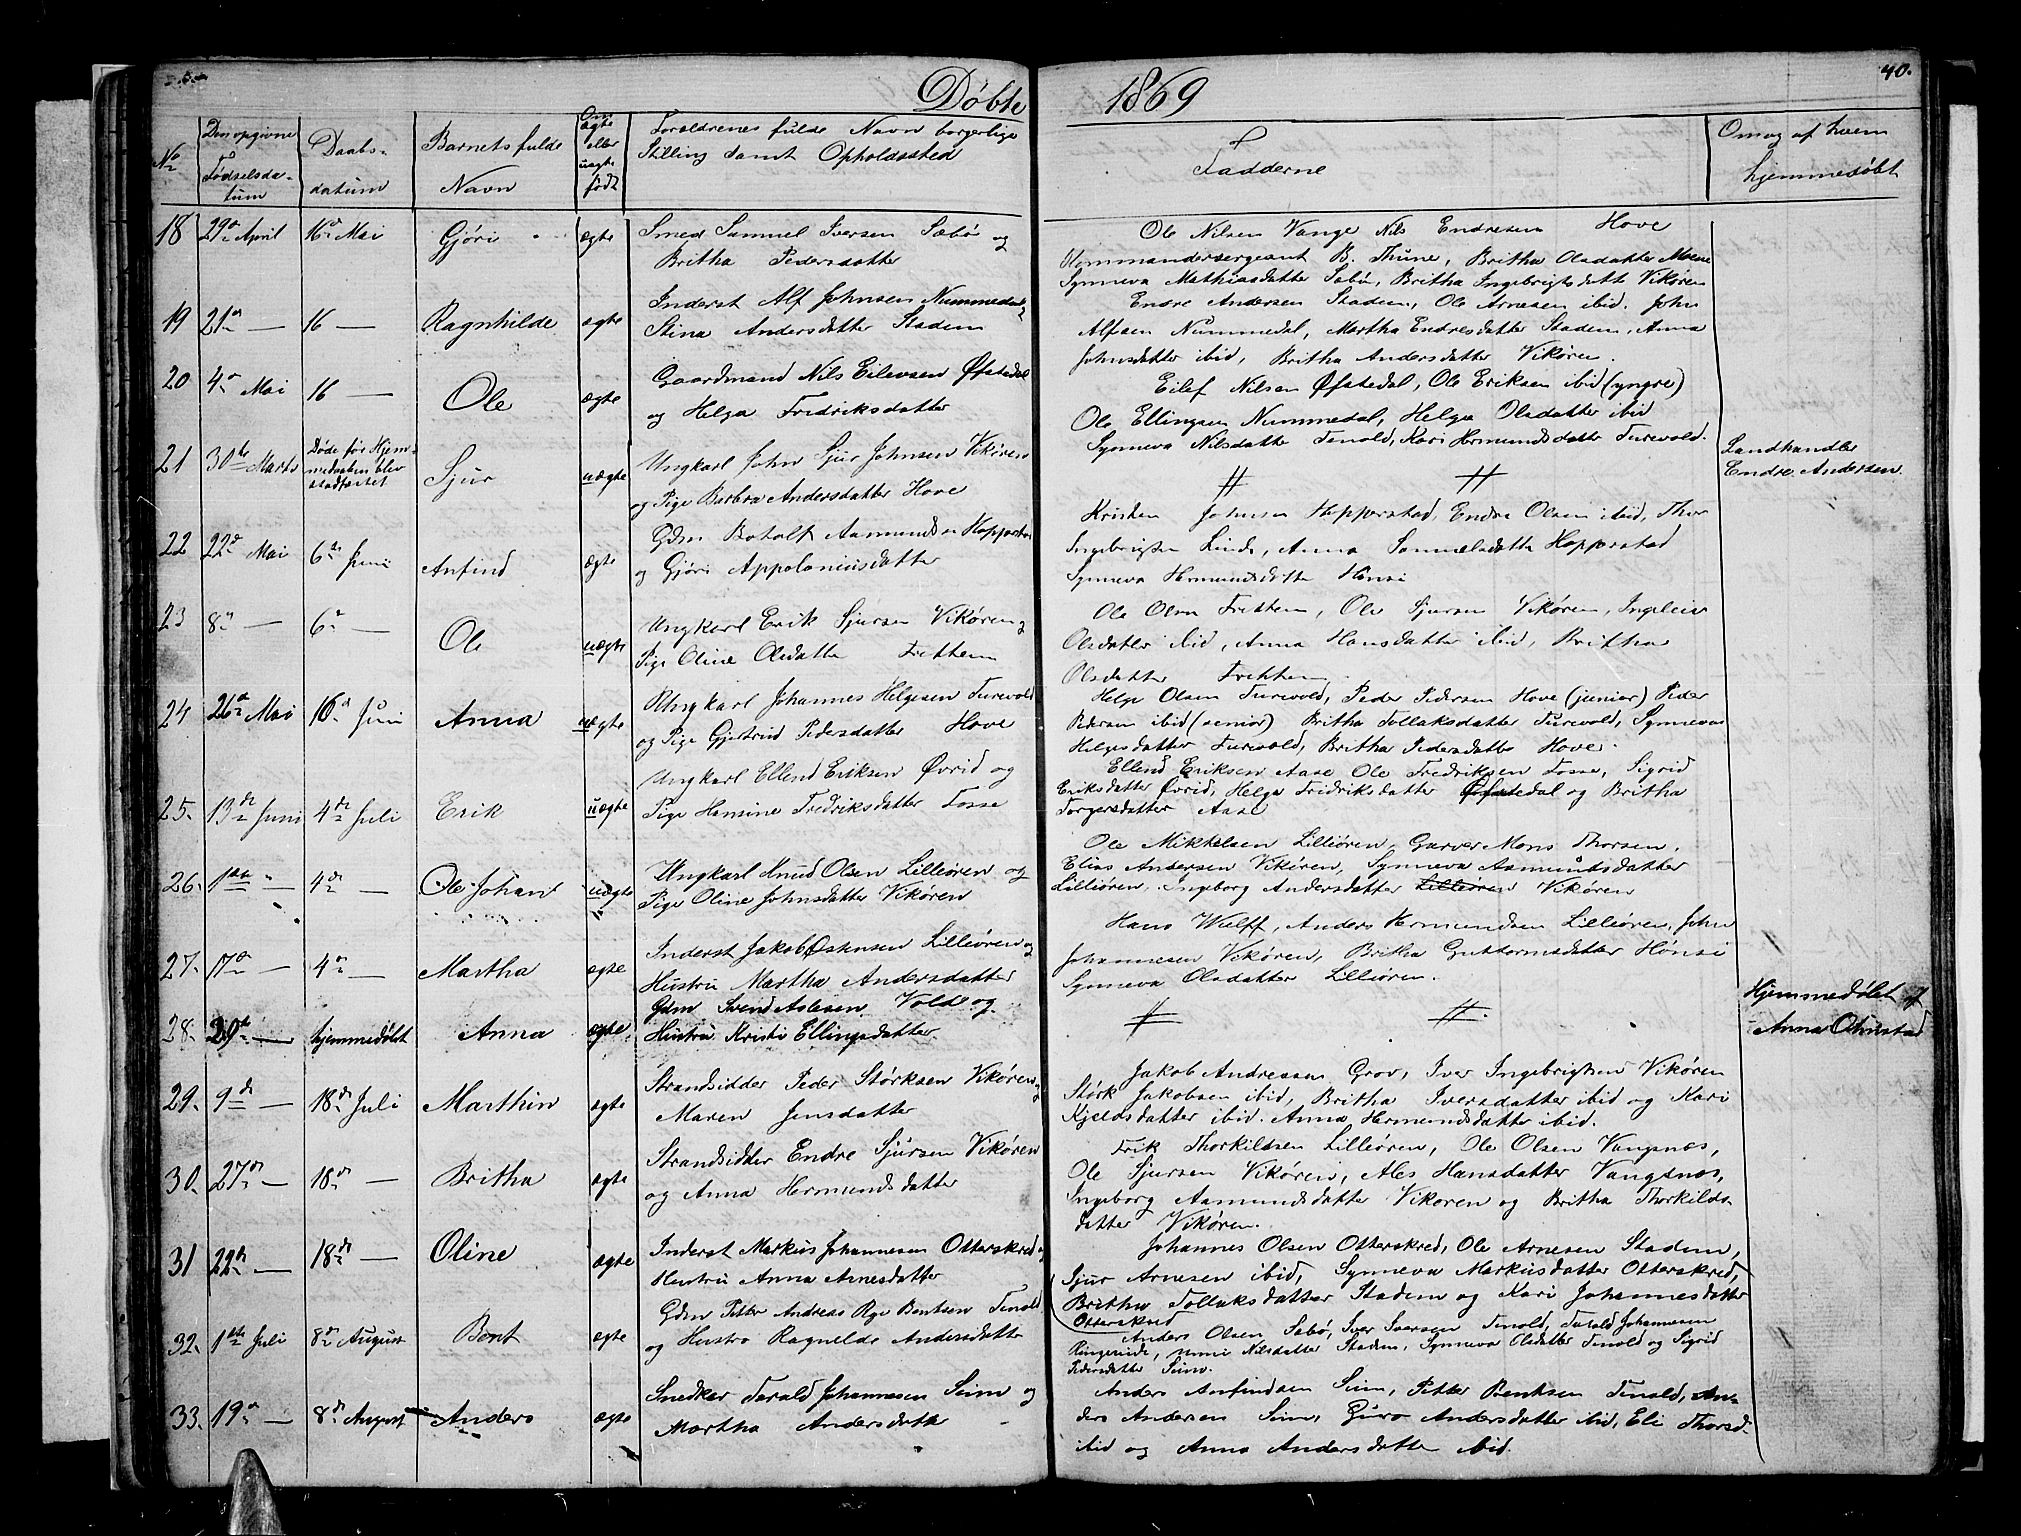 Døbte 1869
40.
No
Den opgivne Fødselsdatum
Daabsdatum
Barnets fulde Navn
Om ægte eller uægte født
Forældrenes fulde Navn borgerlige Stilling samt Opholdssted
Fadderne
Om og af hvem hjemmedøbt
18 29de April 16de Mai Gjøri ægte Smed Samuel Iversen Sæbø og
Britha Pedersdatter
Ole Nilsen Vange Nils Endresen Hove
Kommandersergeant B. Thune, Britha Olsdatter Moene
Synneva Mathiasdatter Sæbø, Britha Ingebrigtsdatt Vikøren
19 21de — 16 — Ragnhilde ægte Inderst Alf Johnsen Nummedal &
Stina Andersdatter Stadem
Endre Andersen Stadem, Ole Arnesen ibid. John
Alfsen Nummedal, Martha Endresdatter Stadem, Anna
Johnsdatter ibid, Britha Andersdatter Vikøren.
20 4de Mai 16 — Ole ægte Gaardmand Nils Eilevsen Øfstedal
og Helga Fredriksdatter
Eilef Nilsen Øfstedal, Ole Eriksen ibid (yngre)
Ole Ellingsen Nummedal, Helga Olsdatter ibid
Synneva Nilsdatte Tenold, Kari Hermundsdatte Turevold.
21 30te Marts Døde før Hjem-
medaaben blev
stadfæstet Sjur uægte Ungkarl John Sjur Johnsen Vikøren
og Pige Barbra Andersdatter Hove
Landhandler
Endre Andersen.
22 22de Mai 6te Juni Anfind ægte Gdm Botolf Aamundsen Hopperstad
og Gjøri Appoloniusdatter
Kristen Johnsen Hopperstad, Endre Olsen ibid, Thor
Ingebrigtsen Linde, Anna Samuelsdatte Hopperstad
Synneva Hermundsdatte Hønsi
23 8de — 6te — Ole uægte Ungkarl Erik Sjursen Vikøren og
Pige Oline Olsdatte Fettem
Ole Olsen Fettem, Ole Sjursen Vikøren, Ingleiv
Olsdatter ibid, Anna Hansdatter ibid, Britha
Olsdatter Fettem.
24 26de Mai 16de Juni Anna uægte Ungkarl Johannes Helgesen Turevold
og Pige Gjertrud Pedersdatter Hove
Helge Olsen Turevold, Peder Pedersen Hove (junior) Peder
Pedersen ibid (senior) Britha Tollaksdatter Turevold, Synneva
Helgesdatter Turevold, Britha Pedersdatte Hove.
25. 13de Juni 4de Juli Erik uægte Ungkarl Ellend Eriksen Øvrid og
Pige Hansine Fredriksdatter Fosse
Ellend Eriksen Aase Ole Fredriksen Fosse, Sigrid
Eriksdatter Øvrid, Helga Fridriksdatter Øfstedal og Britha
Torgersdatter Aase
26. 1ste — 4de — Ole Johan uægte Ungkarl Knud Olsen Lilleøren og
Pige Oline Johnsdatter Vikøren
Ole Mikkelsen Lilleøren, Garver Mons Thorsen,
Elias Andersen Vikøren, Synneva Aamundsdatter
Lilleøren. Ingeborg Andersdatter Lilleøren Vikøren
27. 17de — 4de — Martha ægte Inderst Jakob Østensen Lilleøren og
Hustru Martha Andersdatter
Hans Wulff, Anders Hermundsen Lilleøren, John
Johannesen Vikøren, Britha Guttormsdatter Hønsi
Synneva Olsdatter Lilleøren.
28. 20de — hjemmedøbt Anna ægte Gdm Svend Aslesen Volde og
Hustru Kristi Ellingsdatter.
Hjemmedøbt af
Anna Ohnstad
29. 9de — 18de Juli Marthin ægte Strandsidder Peder Størksen Vikøren og
Maren Jensdatter
Jakob Andreasen Grov, Iver Ingebrigtsen Vikøren
Størk Jakobsen ibid, Britha Iversdatter ibid og Kari
Kjeldsdatter ibid. Anna Hermundsdatter ibid.
30. 27de — 18de — Britha ægte Strandsidder Endre Sjursen Vikøren
og Anna Hermundsdatter
Erik Thorkildsen Lilleøren, Ole Olsen Vangsnes,
Ole Sjursen Vikøren, Ales Hansdatter Vangsnes,
Ingeborg Aamundsdatter Vikøren og Britha Thorkilds-
datter Vikøren.
31 22de — 18de — Oline ægte Inderst Markus Johannesen Otterskred og
Hustru Anna Arnesdatter
Johannes Olsen Otterskred, Ole Arnesen Stadem,
Sjur Arnesen ibid, Synneva Markusdatter Otterskred,
Britha Tollaksdatter Stadem og Kari Johannesdatter
Otterskred
32. 1ste Juli 8de August Bent ægte Gdm Petter Andreas Rye Bentsen Tenold
og Hustru Ragnilde Andersdatter
Anders Olsen Sæbø, Iver Iversen Tenold, Tarald Johannesen
Ringerinde, Nilsdatter Stadem, Synneva Olsdatter Tenold og Sigrid
Pedersdatter Seim.
33. 19de — 8de August Anders ægte Snedker Tarald Johannesen Seim og
Martha Andersdatte
Anders Anfindsen Seim, Petter Bentsen Tenold, An-
ders Andersen Seim, Guro Andersdatter ibid, Eli Thorsd.
ibid og Anna Andersdatte ibid.